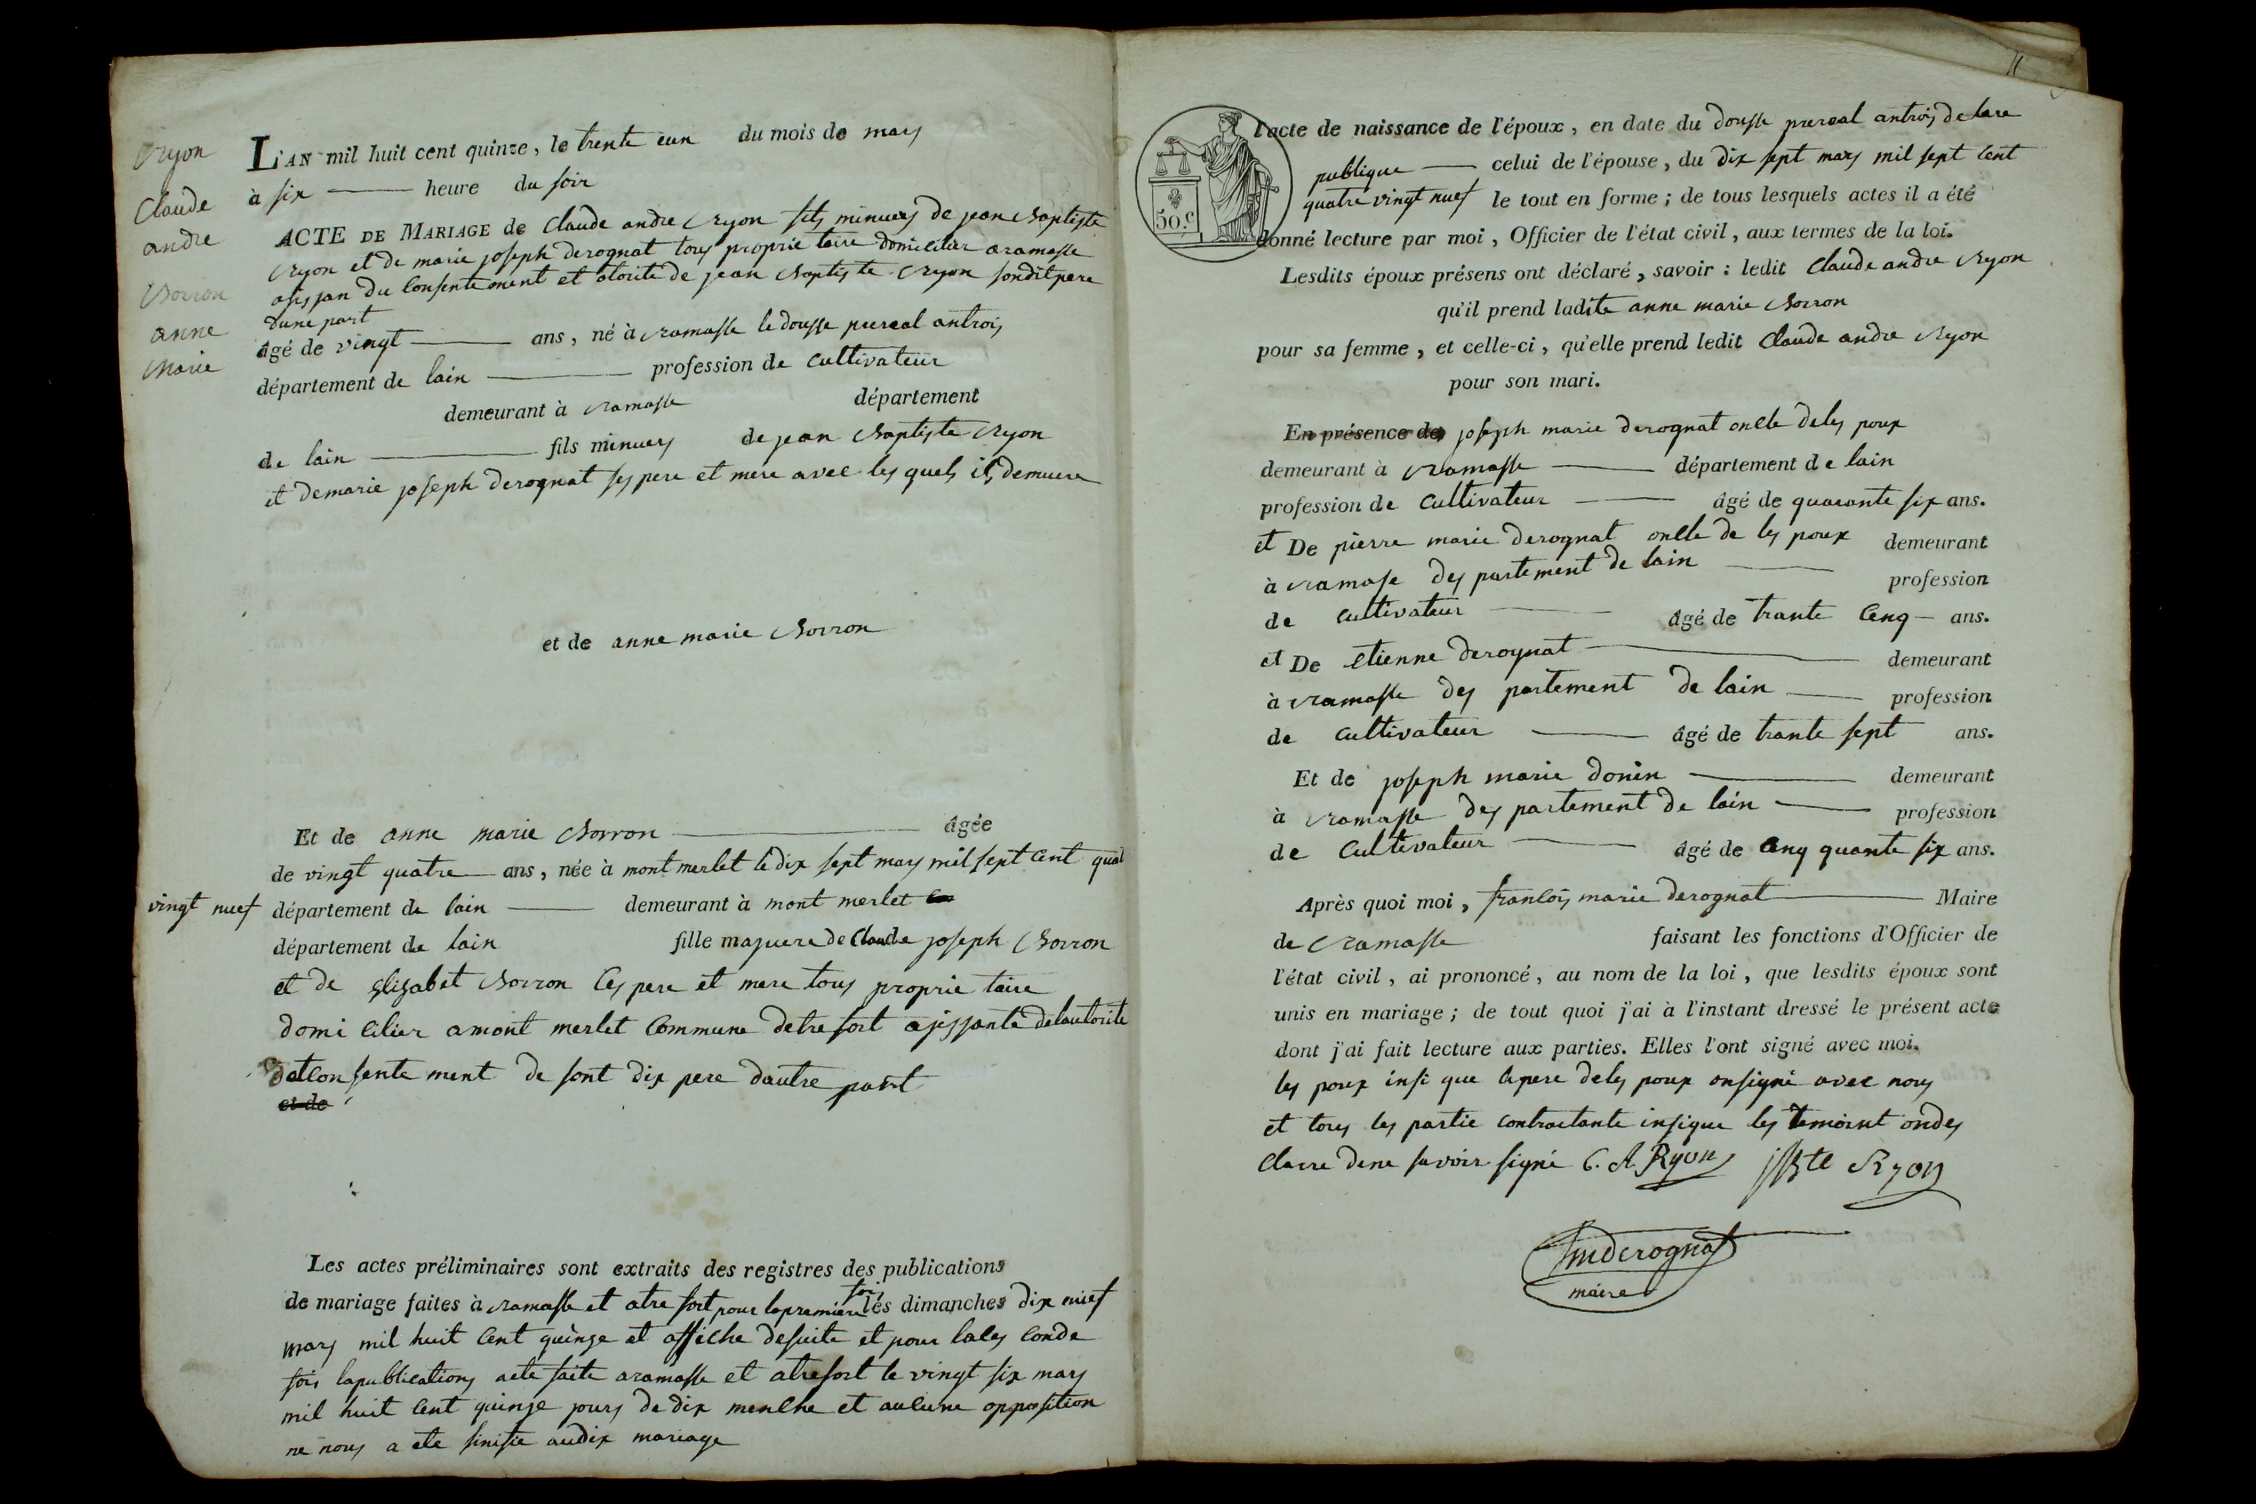 Ryon
Claude
andre
Borron
anne
Marie
L'AN mil huit cent quinze, le trente eun du mois de mars
à six heure du soir
ACTE DE MARIAGE de Claude andre Ryon fils mineurs de jean Baptiste
Ryon et de marie joseph derognat tous proprie taire domicilier aramasse
agissan du Consentement et otorite de jean Baptiste Ryon sondit pere
dune part
âgé de vingt ans, né à ramasse le dousse pureal antrois
département de lain profession de Cultivateur
demeurant à ramasse département
de lain fils minuers de jean Baptiste Ryon
et demarie joseph derognat ses pere et mere avec les quels ils demuere
et de anne marie Borron
Et de anne marie Borron âgée
de vingt quatre ans, née à mont merlet le dix sept mars mil sept Cent quat
vingt nuef département de lain demeurant à mont merlet
département de lain fille majuere de Claude joseph Borron
et de Elizabet Borron Ces pere et mere tous proprie taire
domi Cilier amont merlet Commune detrefort agissante delautorite
et Consente ment de sont dix pere dautre part
et de
Les actes préliminaires sont extraits des registres des publications
de mariage faites à ramasse et atre fort pour la premiere foi les dimanches dix nuef
mars mil huit Cent quinze et affiche desuite et pour lases Conde
fois lapublications aete faite aramasse et atrefort le vingt six mars
mil huit Cent quinze jours de dix menche et aucune opposition
ne nous a ete sinifie audix mariage
50 c.
l'acte de naissance de l'époux, en date du dousse pureal antrois delare
publique celui de l'épouse, du dix sept mars mil sept Cent
quatre vingt nuef le tout en forme; de tous lesquels actes il a été
donné lecture par moi, Officier de l'état civil, aux termes de la loi.
Lesdits époux présens ont déclaré, savoir: ledit Claude andre Ryon
qu'il prend ladite anne marie Borron
pour sa femme, et celle-ci, qu'elle prend ledit Claude andre Ryon
pour son mari.
En présence de joseph marie derognat oncle deles poux
demeurant à ramasse département de lain
profession de Cultivateur âgé de quarante six ans.
et De pierre marie derognat oncle de les poux demeurant
à ramase des partement de lain profession
de Cultivateur âgé de trante Cenq ans.
et De etienne derognat demeurant
à ramasse des partement de lain profession
de Cultivateur âgé de trante sept ans.
Et de joseph marie donin demeurant
à ramasse des partement de lain profession
de Cultivateur âgé de Cenq quante six ans.
Après quoi moi, francois marie derognat Maire
de ramasse faisant les fonctions d'Officier de
l'état civil, ai prononcé, au nom de la loi, que lesdits époux sont
unis en mariage; de tout quoi j'ai à l'instant dressé le présent acte
dont j'ai fait lecture aux parties. Elles l'ont signé avec moi.
les poux insi que lepere deles poux onsigné avec nous
et tous les partie contractante insique les temoint ondes
Claire dene savoir signé C. A. Ryon JBte Ryon
fmderognat
maire